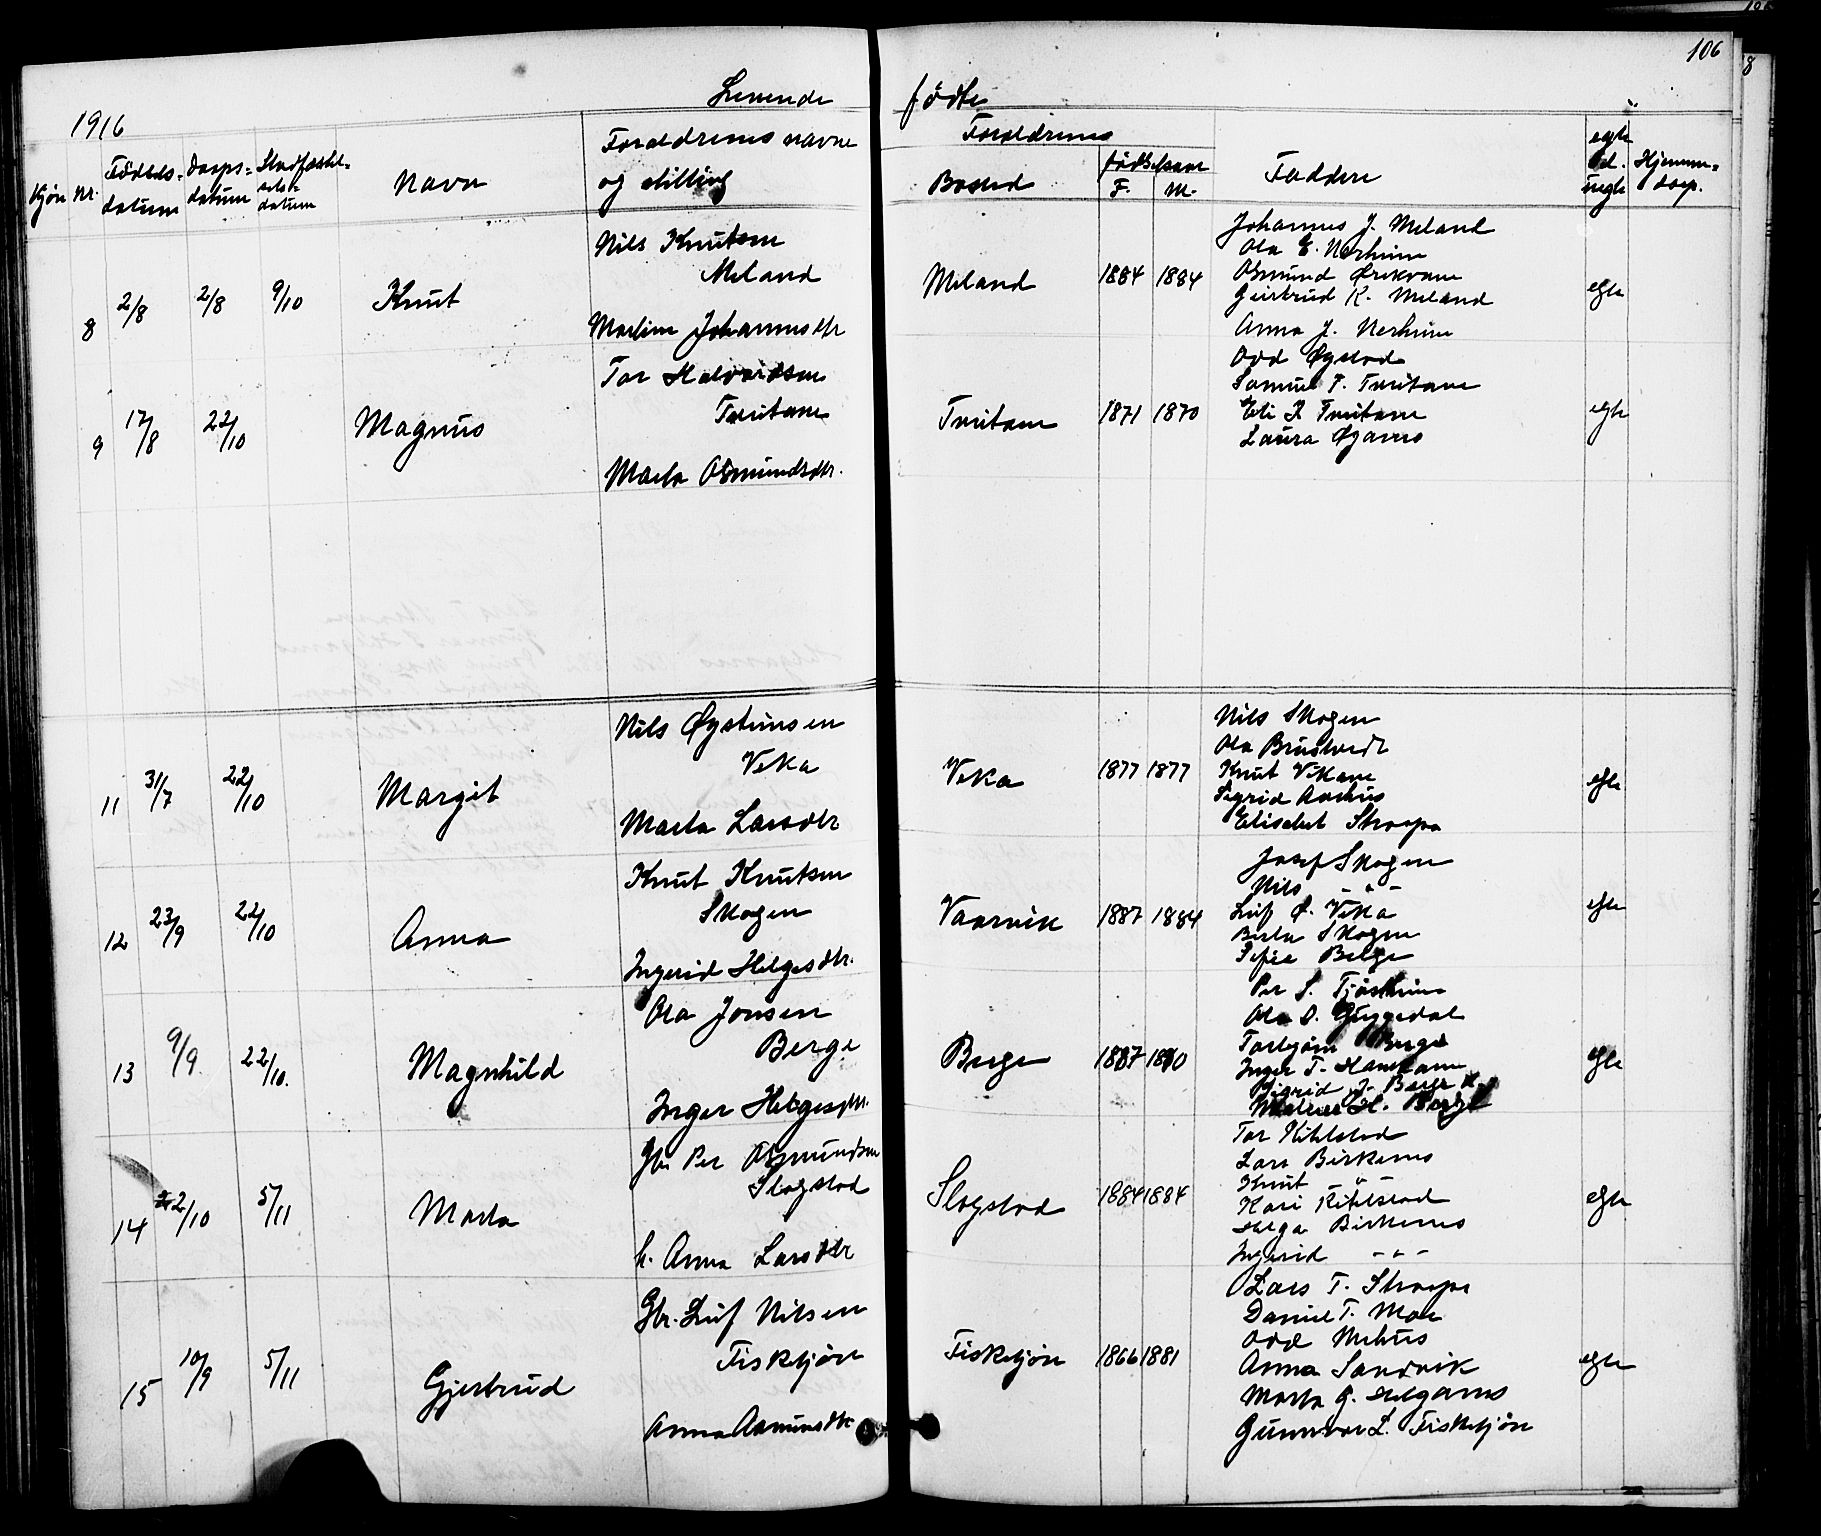 106
8
Levende fødte
1916
Kjøn Nr. Fødsels-datum Daaps-datum Stadfæstel-ses-datum Navn Foraldrenes navne og stilling Foraldrenes Bosted fødselsaar F. M. Faddere egte el. uegte Hjemme-daap.
8 2/8 2/8 9/10 Knut
Nils Knutsen
Meland
Marline Johannesdtr
Meland 1884 1884 egte
Johannes J. Meland
Ola E. Nerheim
Osmund Ørekvam
Geirtrud K. Meland
Anna J. Nerheim
9 17/8 22/10 Magnus
Tor Halvardsen
Tveitane
Marta Osmundsdtr.
Tveitane 1871 1870 egte
Odd Øystad
Samuel T. Tveitane
Eli T. Tveitane
Laura Øganes
11 31/7 22/10 Margit
Nils Øysteinsen
Veka
Marta Larsdtr
Veka 1877 1877 egte
Nils Skogen
Ola Brustvedt
Knut Vekane
Sigrid Aarhus
Elisabet Skarpa
12 23/9 22/10 Anna
Knut Knutsen
Skogen
Ingerid Helgesdtr.
Vaarvik 1887 1884 egte
Josef Skogen
Nils - " -
Leif Ø. Veka
Berta Skogen
Sofie Berge
13 9/9 22/10. Magnhild
Ola Jonsen
Berge
Inger Helgesdtr.
Berge 1887 1880 egte
Per S. Tjøstheim
Ola O. Guggedal
Torbjørn Berge
Inger T. Hamrane
Sigrid J. Berge
H. Berge
14 2/10 5/11 Marta
Gbr Per Osmundsen
Slogstad
h. Anna Larsdtr
Slogstad 1884 1884 egte
Tor Kihlstad
Lars Birkenes
Knut - " -
Kari Kihlstad
Helga Birkenes
Ingerid - " -
15 10/9 5/11 Gjertrud
Gbr. Leif Nilsen
Fisketjøn
Anna Asmundsdtr
Fisketjøn 1866 1881 egte
Lars T. Skarpa
Daniel T. Moe
Odd Mehus
Anna Sandvik
Marta G. Helganes
Gunnvor L. Fisketjøn